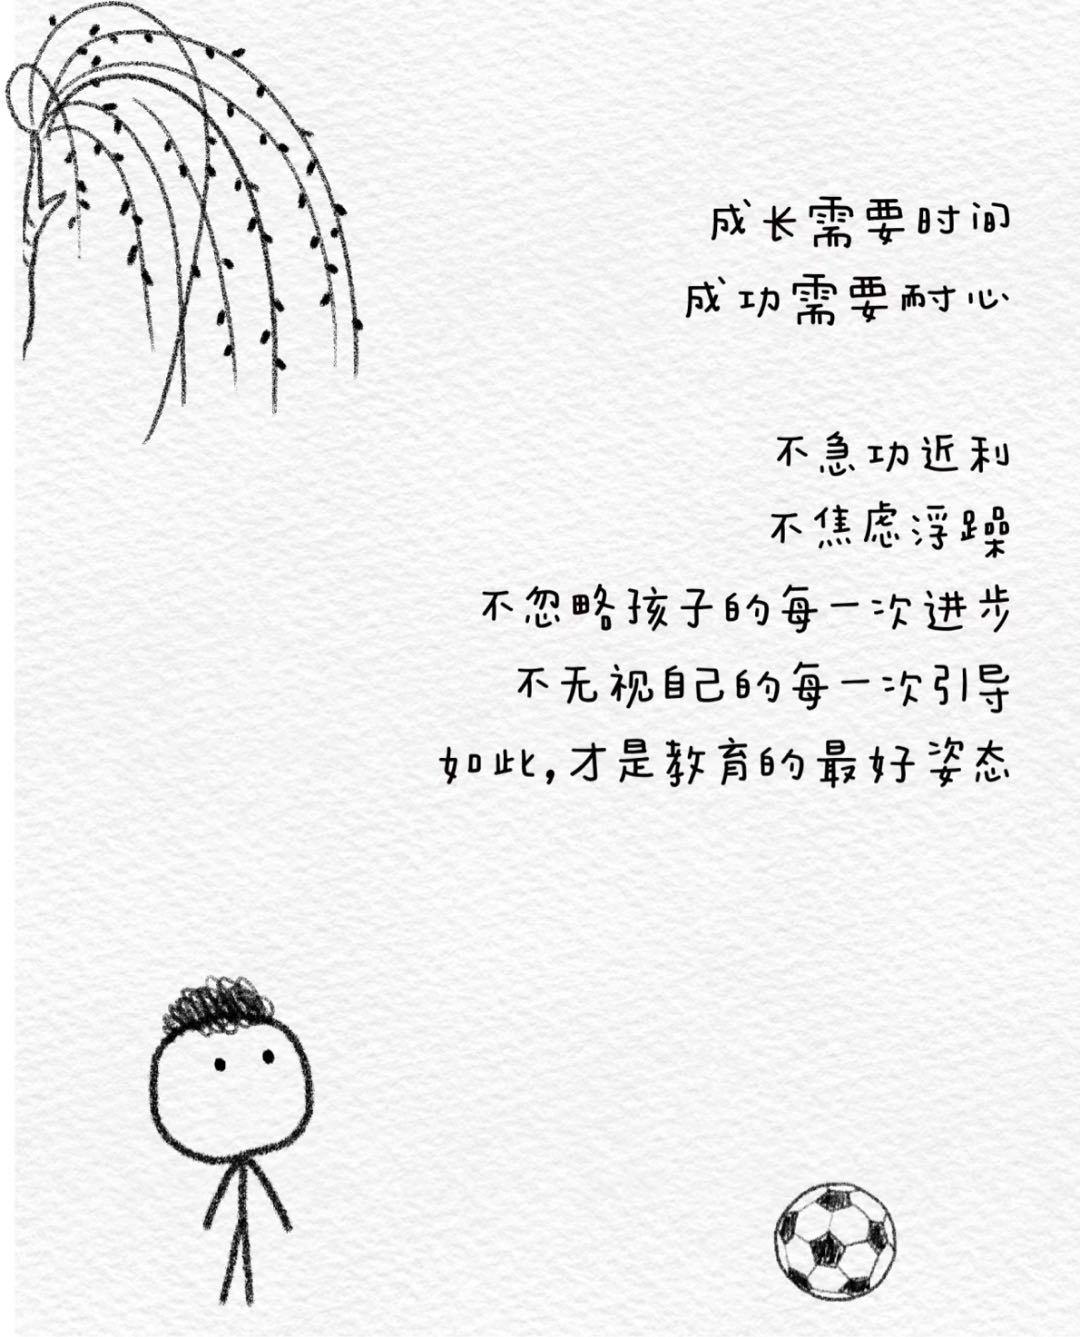 成长需要时间
成功需要耐心
不急功近利
不焦虑浮躁
不忽略孩子的每一次进步
不无视自己的每一次引导
如此,才是教育的最好姿态